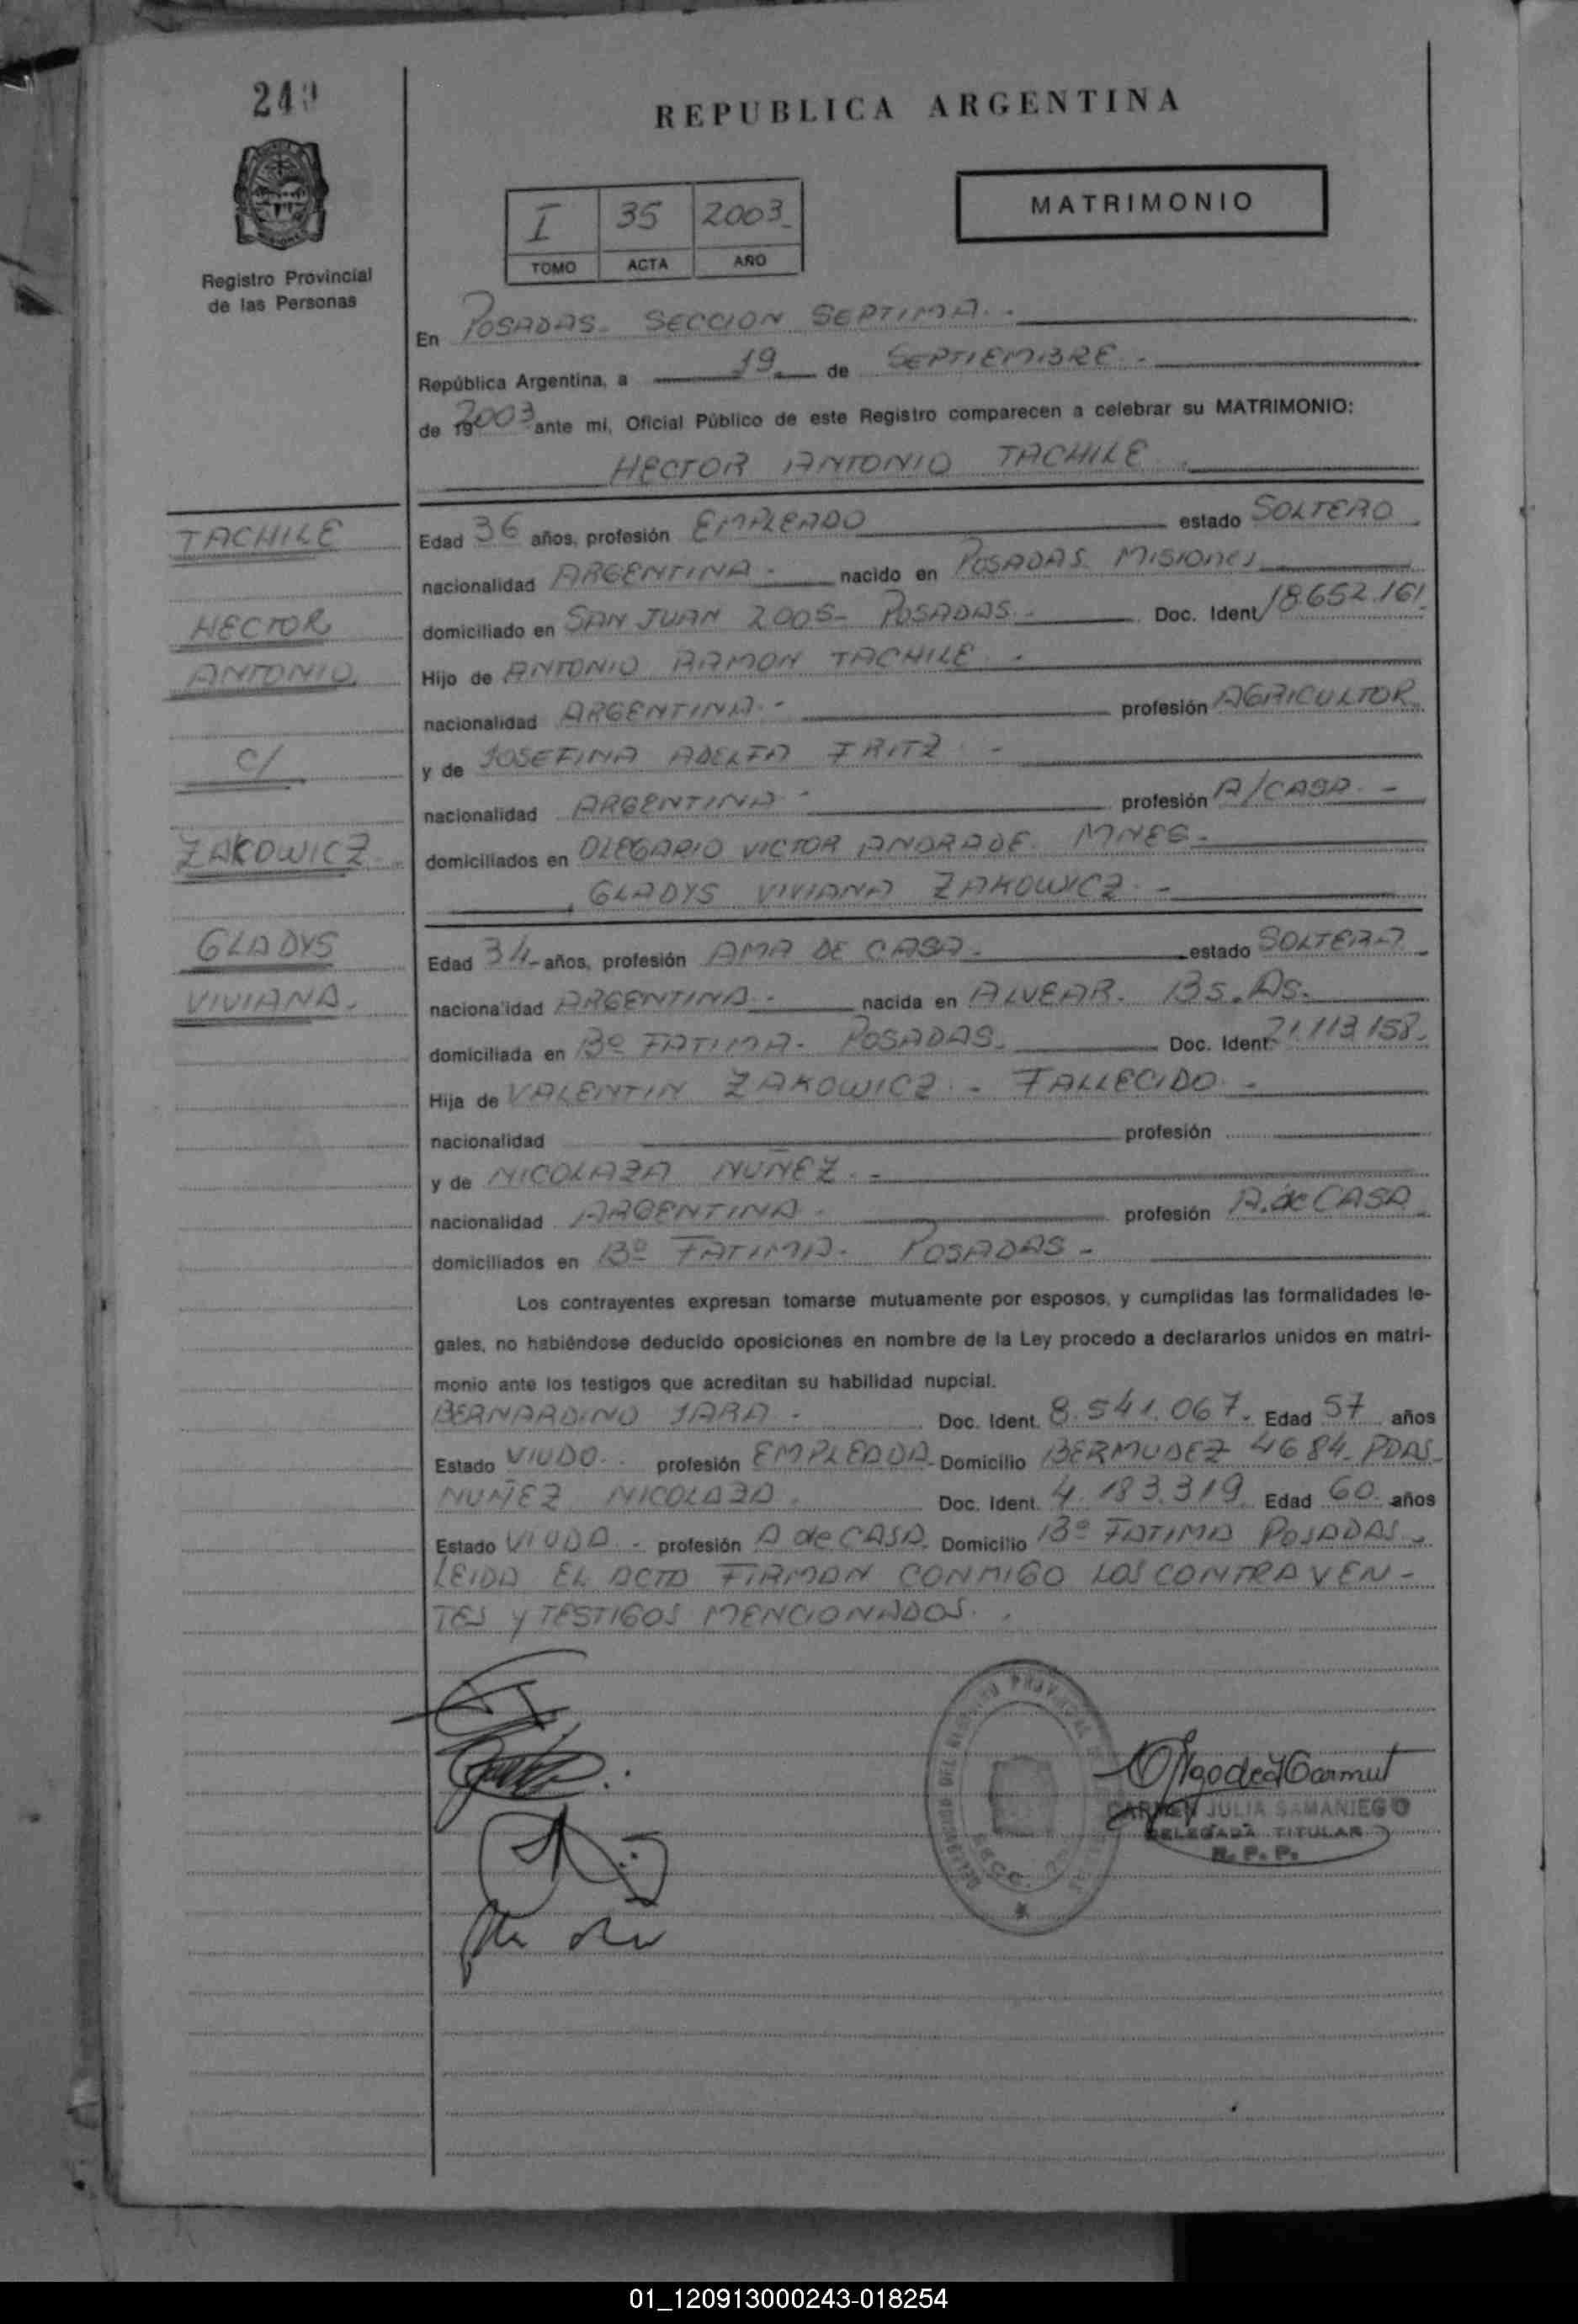 REPUBLICA ARGENTINA
Registro Provincial
de las Personas
I 35 2003
TOMO ACTA AÑO
MATRIMONIO
En POSADAS - SECCION SEPTIMA. -
República Argentina, a 19 de SEPTIEMBRE. -
de 2003 ante mi, Oficial Público de este Registro comparecen a celebrar su MATRIMONIO:
HECTOR ANTONIO TACHILE
TACHILE
HECTOR
ANTONIO
C/
ZAKOWICZ
GLADYS
VIVIANA.
Edad 36 años, profesión EMPLEADO estado SOLTERO
nacionalidad ARGENTINA - nacido en POSADAS MISIONES
domiciliado en SAN JUAN 2005 - POSADAS - Doc. Ident. 18.652.161
Hijo de ANTONIO RAMON TACHILE -
nacionalidad ARGENTINA - profesión AGRICULTOR
y de JOSEFINA ADELFA FRITZ -
nacionalidad ARGENTINA - profesión A/CASA. -
domiciliados en OLEGARIO VICTOR ANDRADE. MNES -
GLADYS VIVIANA ZAKOWICZ. -
Edad 34 - años, profesión AMA DE CASA - estado SOLTERA
nacionalidad ARGENTINA - nacida en ALVEAR. BS. AS.
domiciliada en Bº FATIMA - POSADAS - Doc. Ident. 21.113.158.
Hija de VALENTIN ZAKOWICZ. - FALLECIDO. -
nacionalidad profesión
y de NICOLAZA NUÑEZ. -
nacionalidad ARGENTINA. profesión A. de CASA
domiciliados en Bº FATIMA. POSADAS -
Los contrayentes expresan tomarse mutuamente por esposos, y cumplidas las formalidades le-
gales, no habiéndose deducido oposiciones en nombre de la Ley procedo a declararlos unidos en matri-
monio ante los testigos que acreditan su habilidad nupcial.
BERNARDINO JARA - Doc. Ident. 8.541.067. Edad 57 años
Estado VIUDO. profesión EMPLEADA - Domicilio BERMUDEZ 4684. PDAS -
NUÑEZ NICOLAZA. Doc. Ident. 4.183.319 Edad 60 años
Estado VIUDA - profesión A de CASA. Domicilio Bº FATIMA POSADAS -
LEIDA EL ACTA FIRMAN CONMIGO LOS CONTRAYEN-
TES Y TESTIGOS MENCIONADOS.
CARMEN JULIA SAMANIEGO
DELEGADA TITULAR
R. P. P.
01_120913000243-018254